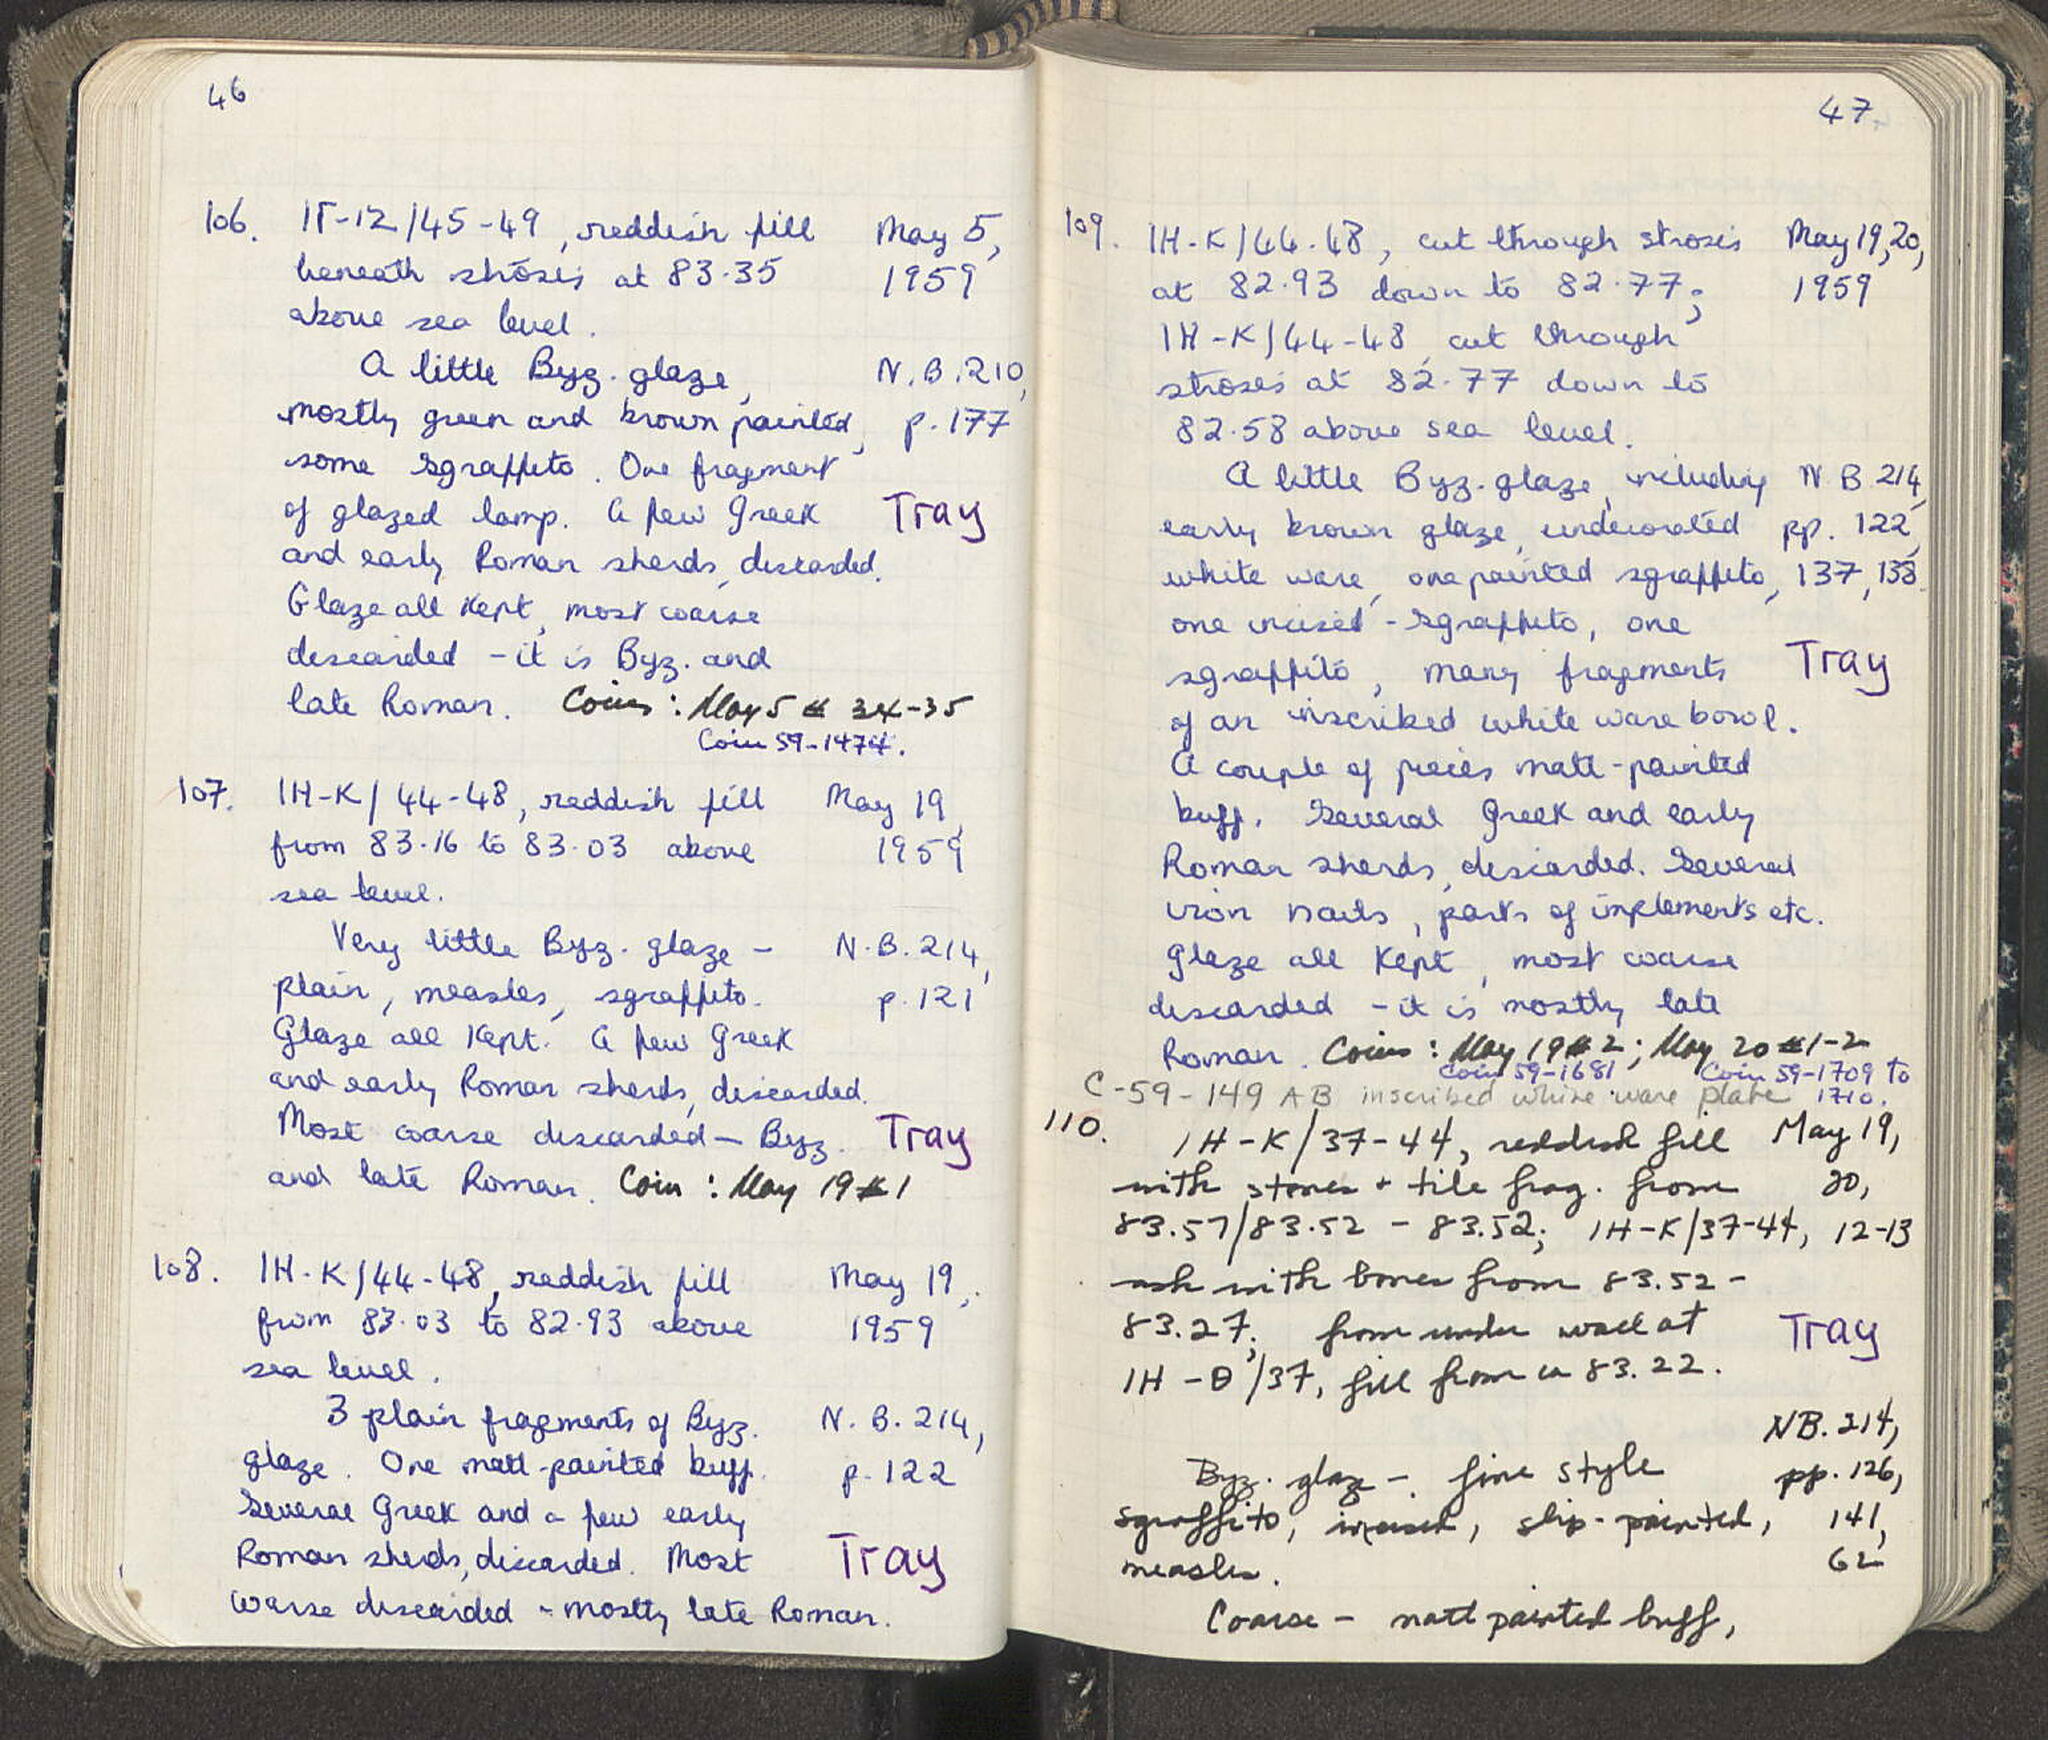 46
106. 1Γ-12/45-49, reddish fill May 5,
beneath strōsis at 83.35 1959
above sea level.
A little Byz. glaze, N.B.210,
mostly green and brown painted, p.177
some sgraffito. One fragment
of glazed lamp. A few Greek Tray
and early Roman sherds, discarded.
Glaze all kept, most coarse
discarded - it is Byz. and
late Roman. Coins: May 5 # 34-35
Coin 59-1474.
107. 1H-K/44-48, reddish fill May 19,
from 83.16 to 83.03 above 1959
sea level.
Very little Byz. glaze - N.B.214,
plain, measles, sgraffito. p.121
Glaze all kept. A few Greek
and early Roman sherds, discarded.
Most coarse discarded - Byz. Tray
and late Roman. Coin: May 19 #1
108. 1H-K/44-48, reddish fill May 19,
from 83.03 to 82.93 above 1959
sea level.
3 plain fragments of Byz. N.B.214,
glaze. One matt-painted buff. p.122
Several Greek and a few early
Roman sherds, discarded. Most Tray
coarse discarded - mostly late Roman.
47.
109. 1H-K/44-48, cut through strosis May 19,20,
at 82.93 down to 82.77; 1959
1H-K/44-48, cut through
strosis at 82.77 down to
82.58 above sea level.
A little Byz. glaze, including N.B.214,
early brown glaze, undecorated pp. 122,
white ware, one painted sgraffito, 137,138.
one incised-sgraffito, one
sgraffito, many fragments Tray
of an inscribed white ware bowl.
A couple of pieces matt-painted
buff. Several Greek and early
Roman sherds, discarded. Several
iron nails, parts of implements etc.
Glaze all kept, most coarse
discarded - it is mostly late
Roman. Coins: May 19 #2; May 20 #1-2
Coin 59-1681 Coin 59-1709 to
C-59-149 AB inscribed white ware plate 1710.
110. 1H-K/37-44, reddish fill May 19,
with stones + tile frag. from 20,
83.57/83.52 - 83.52; 1H-K/37-44, 12-13
ash with bones from 83.52 -
83.27; from under wall at Tray
1H-θ/37, fill from ca 83.22.
NB.214,
Byz. glaze - fine style pp.126,
sgraffito, incised, slip-painted, 141,
measles. 62
Coarse - matt painted buff,